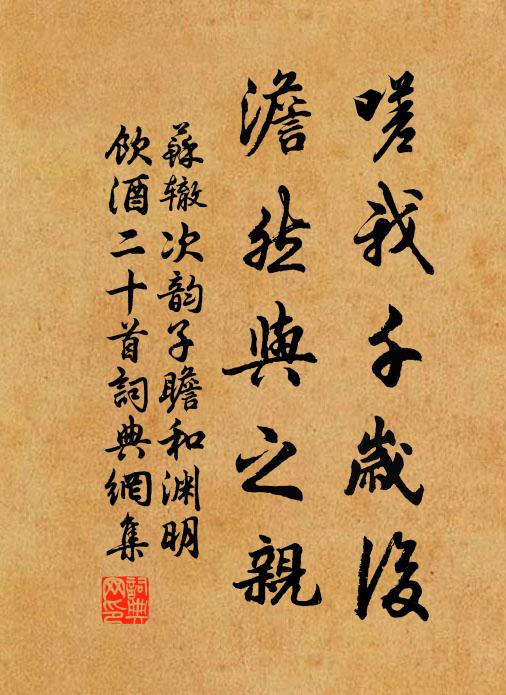 嗟我千歲後
澹然與之親
蘇辙次韵子瞻和渊明
飲酒二十首詞典網集
詞典
网印